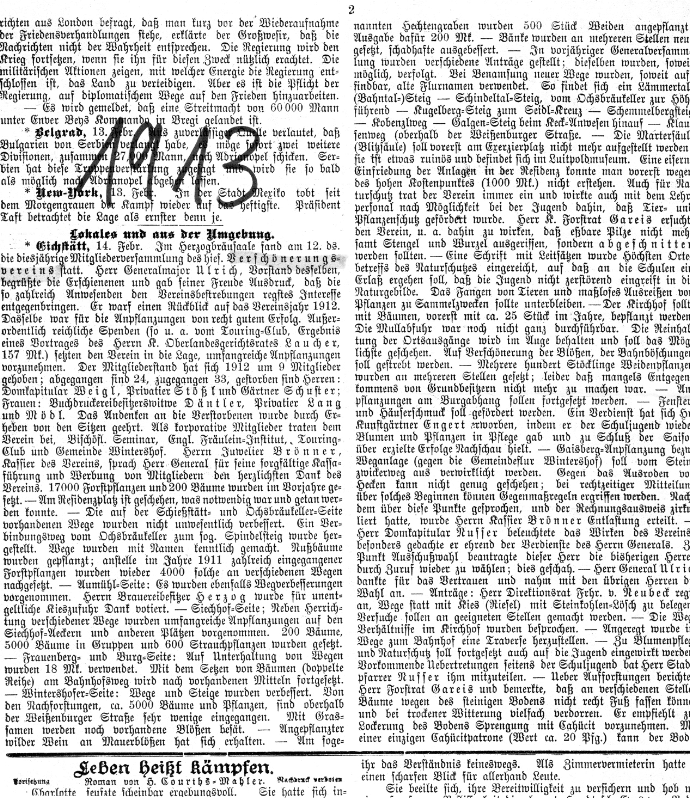 2
richten aus London befragt, daß man kurz vor der Wiederaufnahme
der Friedensverhandlungen stehe, erklärte der Großwesir, daß die
Nachrichten nicht der Wahrheit entsprechen. Die Regierung wird den
Krieg fortsetzen, wenn sie ihn für diesen Zweck nützlich erachtet. Die
militärischen Aktionen zeigen, mit welcher Energie die Regierung ent-
schlossen ist, das Land zu verteidigen. Aber es ist die Pflicht der
Regierung, auf diplomatischen Wege auf den Frieden hinzuarbeiten.
— Es wird gemeldet, daß eine Streitmacht von 60000 Mann
unter Enver Beys Kommando in Bregi gelandet ist.
* Belgrad, 13. zuverlässig verlautet, daß
Bulgarien von Serbien habe, möge fort zwei weitere
Divisionen, zusammen 27. Mann, Adrianopel schicken. Ser-
bien hat diese Truppen und wird sie so bald
als möglich nach Adrianopel abgehen lassen.
* New-York, 13. Feb. In der Stadt Mexiko tobt seit
dem Morgengrauen der Kampf wieder auf das heftigste. Präsident
Taft betrachtet die Lage als ernster denn je.
1913
Lokales und aus der Umgebung.
* Eichstätt, 14. Febr. Im Herzogbräusaale fand am 12. ds.
die diesjährige Mitgliederversammlung des hies. Verschönerungs-
vereins statt. Herr Generalmajor Ulrich, Vorstand desselben,
begrüßte die Erschienenen und gab seiner Freude Ausdruck, daß die
so zahlreich Anwesenden den Vereinsbestrebungen regstes Interesse
entgegenbringen. Er warf einen Rückblick auf das Vereinsjahr 1912.
Dasselbe war für die Anpflanzungen von recht gutem Erfolg. Außer-
ordentlich reichliche Spenden (so u. a. vom Touring-Club, Ergebnis
eines Vortrages des Herrn K. Oberlandesgerichtsrates Laucher,
157 Mk.) setzten den Verein in die Lage, umfangreiche Anpflanzungen
vorzunehmen. Der Mitgliederstand hat sich 1912 um 9 Mitglieder
gehoben; abgegangen sind 24, zugegangen 33, gestorben sind Herren:
Domkapitular Weigl, Privatier Stößl und Gärtner Schuster;
Frauen: Buchdruckereibesitzerswitwe Däntler, Privatier Lang
und Nödl. Das Andenken an die Verstorbenen wurde durch Er-
heben von den Sitzen geehrt. Als korporative Mitglieder traten dem
Verein bei, Bischöfl. Seminar, Engl. Fräulein-Institut, Touring-
Club und Gemeinde Wintershof. Herrn Juwelier Brönner,
Kassier des Vereins, sprach Herr General für seine sorgfältige Kassa-
führung und Werbung von Mitgliedern den herzlichsten Dank des
Vereins. 17000 Forstpflanzen und 200 Bäume wurden im Vorjahre ge-
setzt. — Am Residenzplatz ist geschehen, was notwendig war und getan wer-
den konnte. — Die auf der Schießstätt- und Ochsbräukeller-Seite
vorhandenen Wege wurden nicht unwesentlich verbessert. Ein Ver-
bindungsweg vom Ochsbräukeller zum sog. Spindelsteig wurde her-
gestellt. Wege wurden mit Namen kenntlich gemacht. Nußbäume
wurden gepflanzt; anstelle im Jahre 1911 zahlreich eingegangener
Forstpflanzen wurden wieder 4000 solche an verschiedenen Wegen
nachgesetzt. — Aumühl-Seite: Es wurden ebenfalls Wegverbesserungen
vorgenommen. Herrn Brauereibesitzer Herzog wurde für unent-
geltliche Kieszufuhr Dank votiert. — Siechhof-Seite; Neben Herrich-
tung verschiedener Wege wurden umfangreiche Anpflanzungen auf den
Siechhof-Aeckern und anderen Plätzen vorgenommen. 200 Bäume,
5000 Bäume in Gruppen und 600 Strauchpflanzen wurden gesetzt.
— Frauenberg- und Burg-Seite: Auf Unterhaltung von Wegen
wurden 18 Mk. verwendet. Mit dem Setzen von Bäumen (doppelte
Reihe) am Bahnhofsweg wird nach vorhandenen Mitteln fortgesetzt.
— Wintershofer-Seite: Wege und Steige wurden verbessert. Von
den Nachforstungen, ca. 5000 Bäume und Pflanzen, sind oberhalb
der Weißenburger Straße sehr wenige eingegangen. Mit Gras-
samen werden noch vorhandene Blößen besät. — Angepflanzter
wilder Wein an Mauerblößen hat sich erhalten. — Am soge-
nannten Hechtengraben wurden 500 Stück Weiden angepflanzt
Ausgabe dafür 200 Mk. — Bänke wurden an mehreren Stellen neu
gesetzt, schadhafte ausgebessert. — In vorjähriger Generalversamm
lung wurden verschiedene Anträge gestellt; dieselben wurden, sowei
möglich, verfolgt. Bei Benamsung neuer Wege wurden, soweit auf
findbar, alte Flurnamen verwendet. So findet sich ein Lämmertal
(Bahntal-)Steig — Schindeltal-Steig, vom Ochsbräukeller zur Höh
führend — Kugelberg-Steig zum Seidl-Kreuz — Schemmelbergstei
— Kobenzlweg — Galgen-Steig beim Keck-Anwesen hinauf — Klau
senweg (oberhalb der Weißenburger Straße. — Die Martersäul
(Blitzsäule) soll vorerst am Exerzierplatz nicht mehr aufgestellt werden
sie ist etwas ruinös und befindet sich im Luitpoldmuseum. Eine eisern
Einfriedung der Anlagen in der Residenz konnte man vorerst wege
des hohen Kostenpunktes (1000 Mk.) nicht erstehen. Auch für Na
turschutz trat der Verein immer ein und wirkte auch mit dem Sehr
personal nach Möglichkeit bei der Jugend dahin, daß Tier- un
Pflanzenschutz gefördert wurde. Herr K. Forstrat Gareis ersuch
den Verein, u. a. dahin zu wirken, daß eßbare Pilze nicht meh
samt Stengel und Wurzel ausgerissen, sondern abgeschnitten
werden sollten. — Eine Schrift mit Leitsätzen wurde Höchsten Orte
betreffs des Naturschutzes eingereicht, auf daß an die Schulen ein
Erlaß ergehen soll, daß die Jugend nicht zerstörend eingreift in di
Naturgebilde. Das Fangen von Tieren und maßloses Ausreißen vo
Pflanzen zu Sammelzwecken sollte unterbleiben. — Der Kirchhof sollt
mit Bäumen, vorerst mit ca. 25 Stück im Jahre, bepflanzt werden
Die Müllabfuhr war noch nicht ganz durchführbar. Die Reinhal
tung der Ortsausgänge wird im Auge behalten und soll das Mög
lichste geschehen. Auf Verschönerung der Blößen, der Bahnböschunge
soll gestrebt werden. — Mehrere hundert Stöcklinge Weidenpflanze
wurden an mehreren Stellen gesetzt; leider daß mangels Entgegen
kommens von Grundbesitzern nicht mehr zu machen war. — An
pflanzungen am Burgabhang sollen fortgesetzt werden. — Fenster
und Häuserschmuck soll gefördert werden. Ein Verdienst hat sich H
Kunstgärtner Engert erworben, indem er der Schuljugend wiede
Blumen und Pflanzen in Pflege gab und zu Schluß der Saiso
über erzielte Erfolge Nachschau hielt. — Gaisberg-Anpflanzung bezw
Weganlage (gegen die Gemeindeflur Wintershof) soll vom Stein
zwickerweg aus verwirklicht werden. Gegen das Ausroden vo
Hecken kann nicht genug geschehen; bei rechtzeitiger Mitteilun
über solches Beginnen können Gegenmaßregeln ergriffen werden. Nach
dem über diese Punkte gesprochen, und der Rechnungsausweis zirku
liert hatte, wurde Herrn Kassier Brönner Entlastung erteilt. —
Herr Domkapitular Nusser beleuchtete das Wirken des Vereins
besonders gedachte er ehrend der Verdienste des Herrn Generals. Z
Punkt Ausschußwahl beantragte dieser Herr die bisherigen Herre
durch Zuruf wieder zu wählen; dies geschah. — Herr General Ulric
dankte für das Vertrauen und nahm mit den übrigen Herren d
Wahl an. — Anträge: Herr Direktionsrat Frhr. v. Neubeck reg
an, Wege statt mit Kies (Riesel) mit Steinkohlen-Lösch zu belegen
Versuche sollen an geeigneten Stellen gemacht werden. — Die We
Verhältnisse im Kirchhof wurden besprochen. — Angeregt wurde i
Wege zum Bahnhof eine Traverse herzustellen. — Zu Blumenpfleg
und Naturschutz soll fortgesetzt auch auf die Jugend eingewirkt werde
Vorkommende Uebertretungen seitens der Schuljugend bat Herr Stad
pfarrer Nusser ihm mitzuteilen. — Ueber Aufforstungen berichte
Herr Forstrat Gareis und bemerkte, daß an verschiedenen Stelle
Bäume wegen des steinigen Bodens nicht recht Fuß fassen könne
und bei trockener Witterung vielfach verdorren. Er empfiehlt z
Lockerung des Bodens Sprengung mit Cahücit vorzunehmen. M
einer einzigen Cahücitpatrone (Wert ca. 20 Pfg.) kann der Bod
Leben heißt kämpfen.
Fortsetzung Roman von H. Courths-Mahler. Nachdruck verboten
Charlotte seufzte scheinbar ergebungsvoll. Sie hatte sich in-
ihr das Verständnis keineswegs. Als Zimmervermieterin hatte
einen scharfen Blick für allerhand Leute.
Sie beeilte sich, ihre Bereitwilligkeit zu versichern und hob n